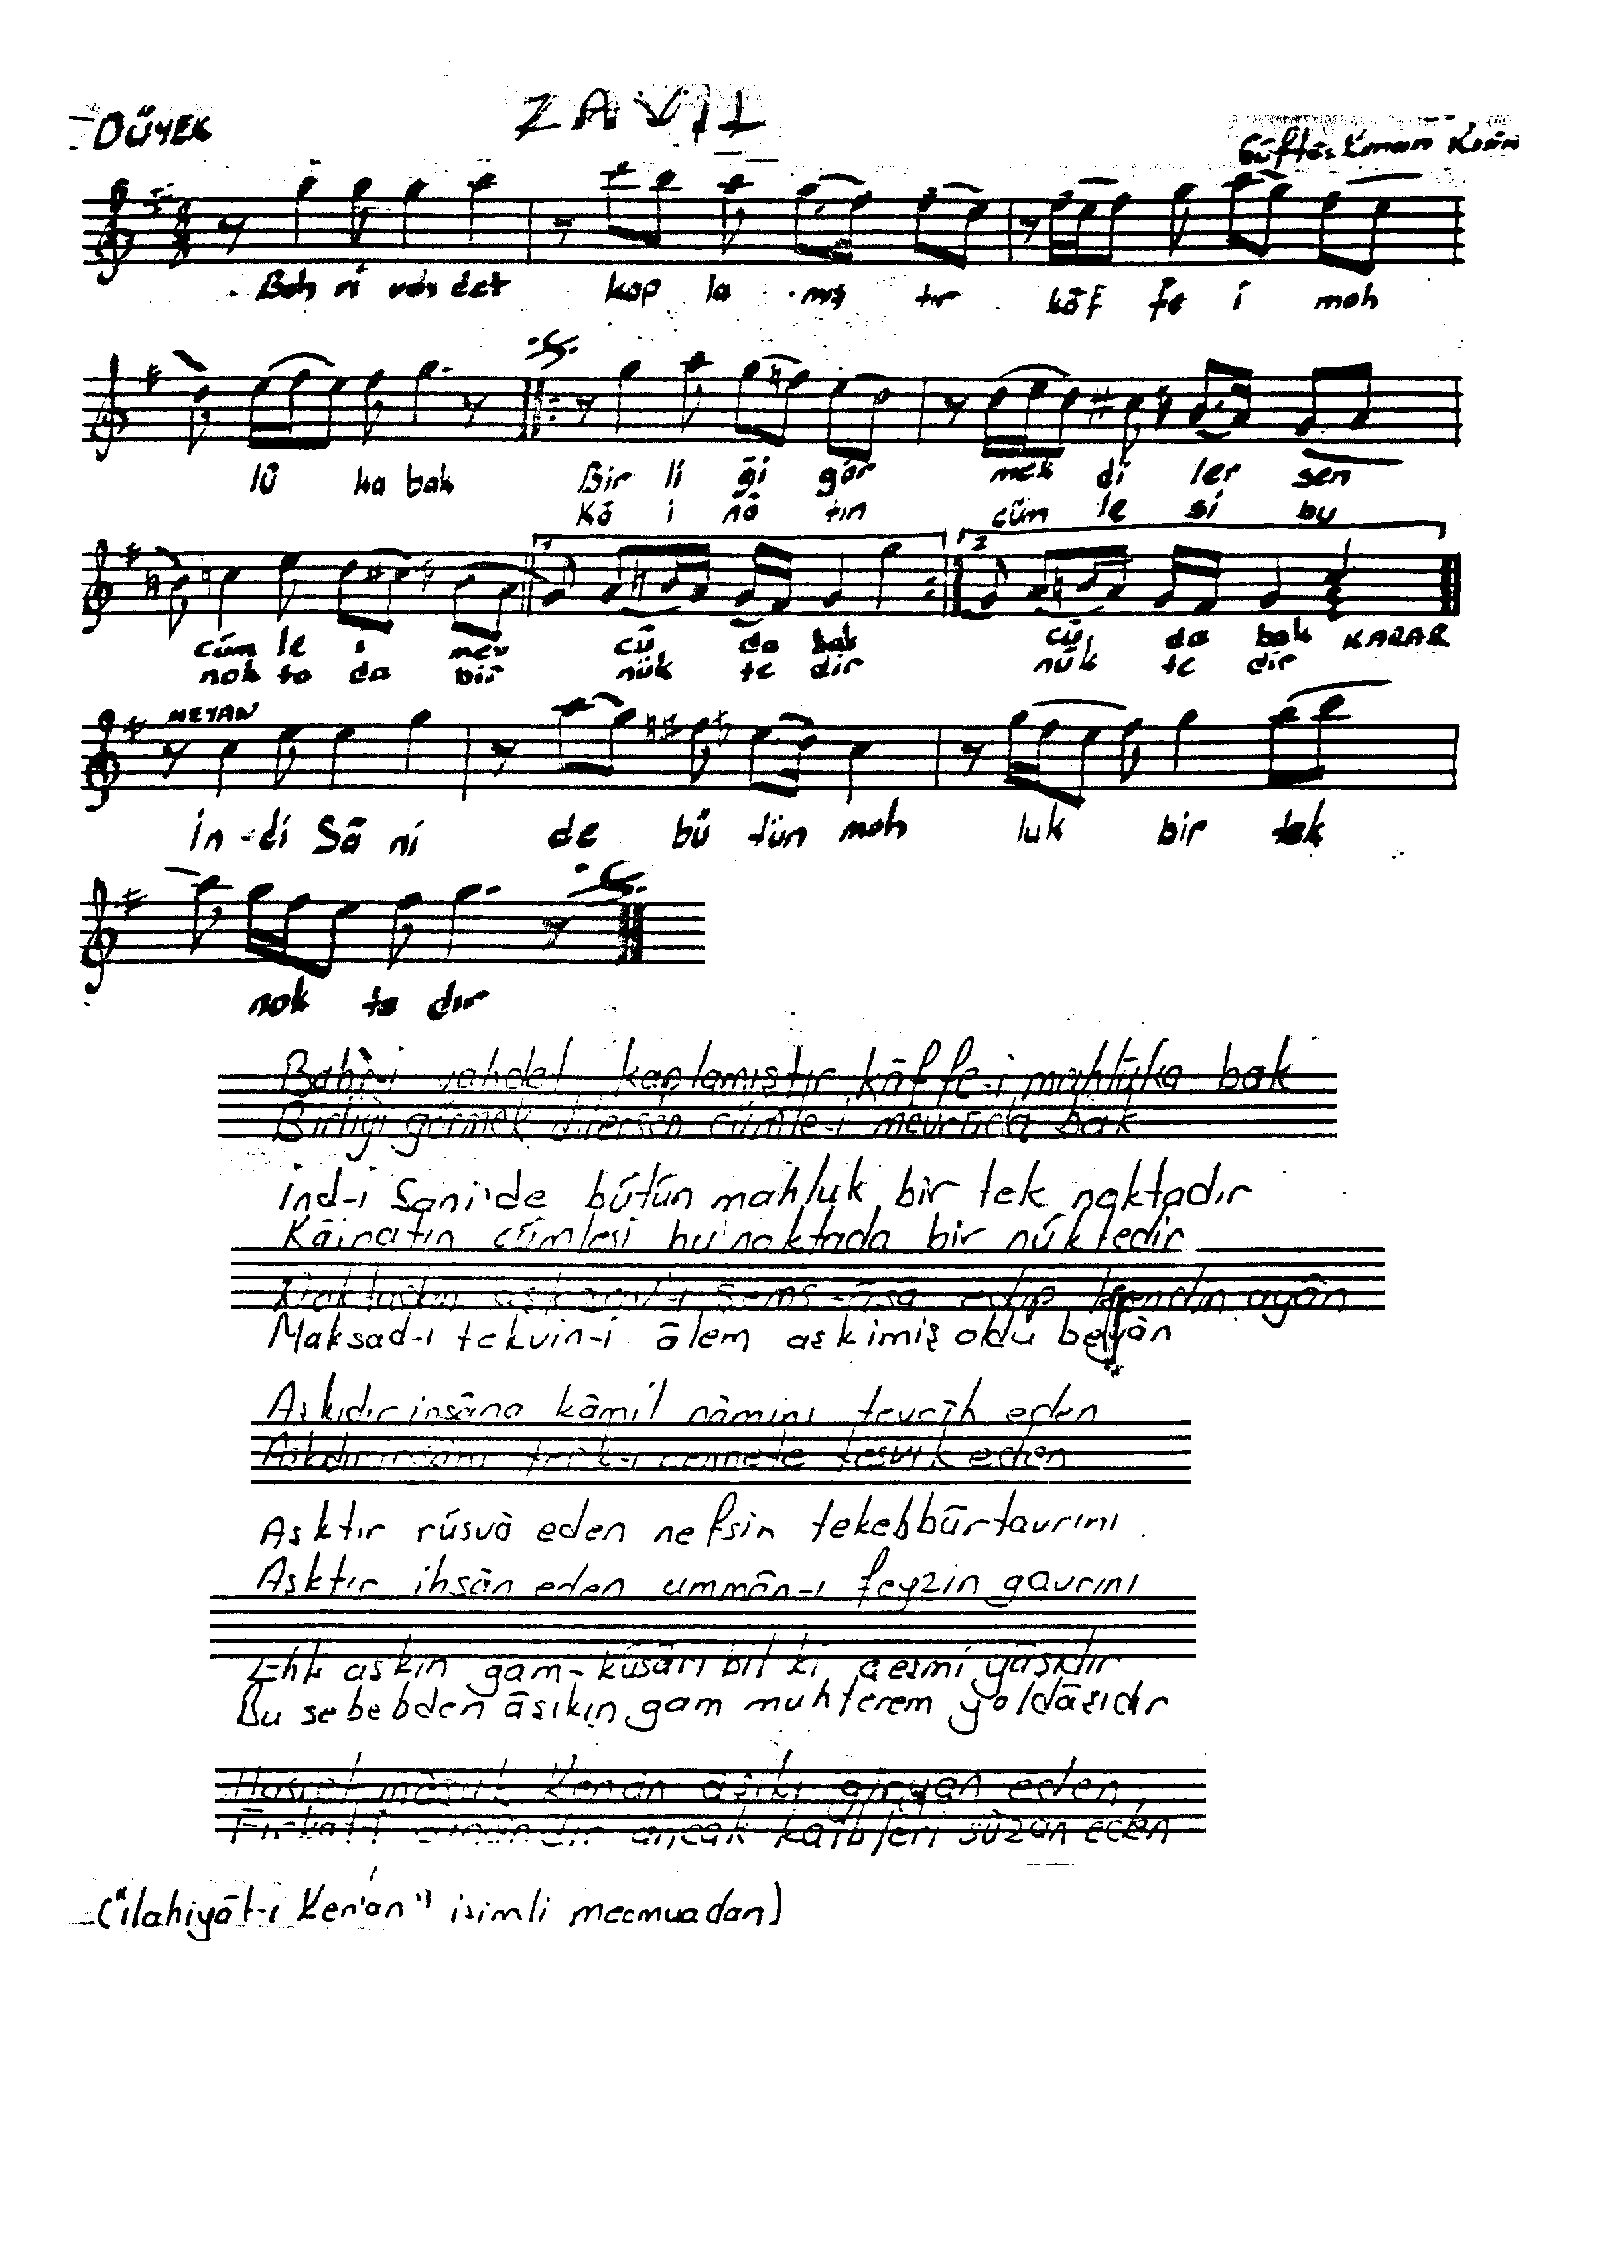 ZAVİL
DÜYEK
Güfte: Kenan
Bah ri vah det kap la mış tır kâf fe i mah
lû ka bak Bir li ği gör mek di ler sen
Kâ i nâ tın cüm le si bu
1 2
cüm le i mev cû da bak cû da bak KARAR
nok ta da bir nük te dir nük te dir
MEYAN
İn-di Sâ ni de bü tün mah luk bir tek
nok ta dır
Bahr-i vahdet kaplamıştır kâffe-i mahlûka bak
Birliği görmek dilersen cümle-i mevcûda bak
İnd-i Sani'de bütün mahluk bir tek noktadır
Kâinatın cümlesi bu noktada bir nüktedir
aşk Şems-âsa edip kendin ayân
Maksad-ı tekvin-i âlem aşkimiş oldu beyân
Aşkıdır insâna kâmil nâmını tevcîh eden
Aşkdır terk-i cennete teşvik eden
Aşktır rüsvâ eden nefsin tekebbür tavrını
Aşktır ihsân eden ummân-ı feyzin gavrını
Ehli aşkın gam-küsârı bil ki çeşmi yâşıdır
Bu sebebden âşıkın gam muhterem yoldâşıdır
Hasret Kenan âşıkı giryan eden
Firkat-i ancak kalbleri sûzan eden
("ilahiyât-ı Ken'an" isimli mecmuadan)